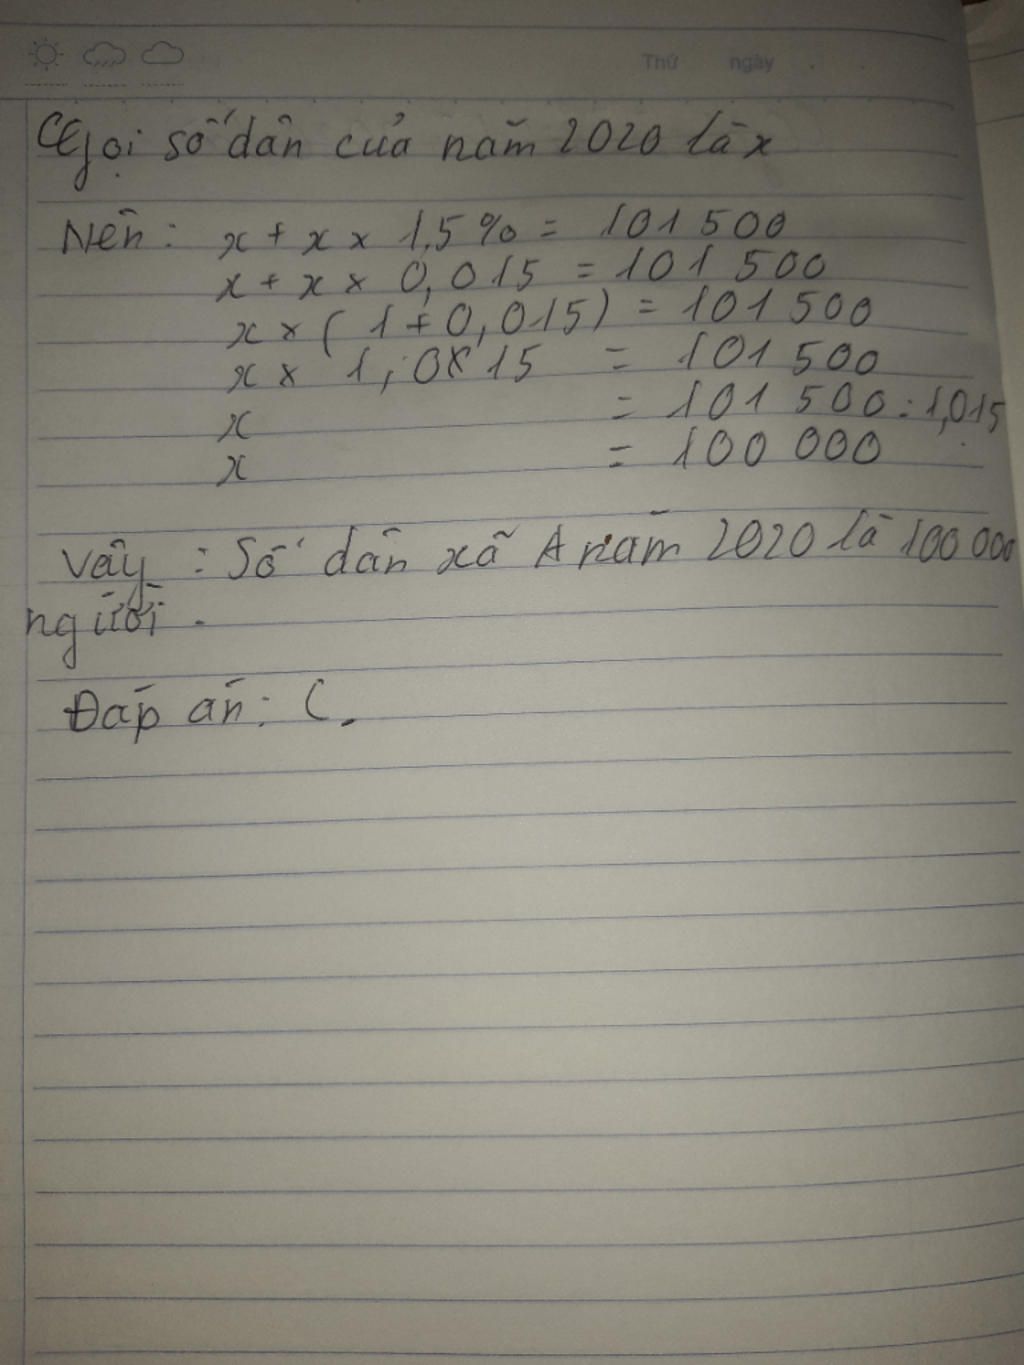 Thứ ngày . .
Gọi số dân của năm 2020 là x
Nên: x + x × 1,5% = 101 500
x + x × 0,015 = 101 500
x × ( 1 + 0,015) = 101 500
x × 1,015 = 101 500
x = 101 500 : 1,015
x = 100 000
Vậy : Số dân xã A năm 2020 là 100 000
người .
Đáp án: C.